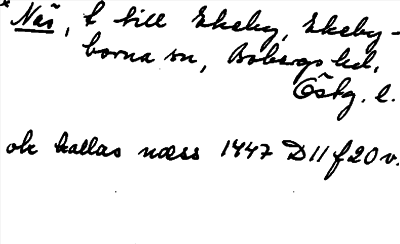 Näs, t till Ekeby, Ekeby-
borna sn, Bobergs hd,
Östg. l.
ok kallas næss 1447 D11 f 20 v.